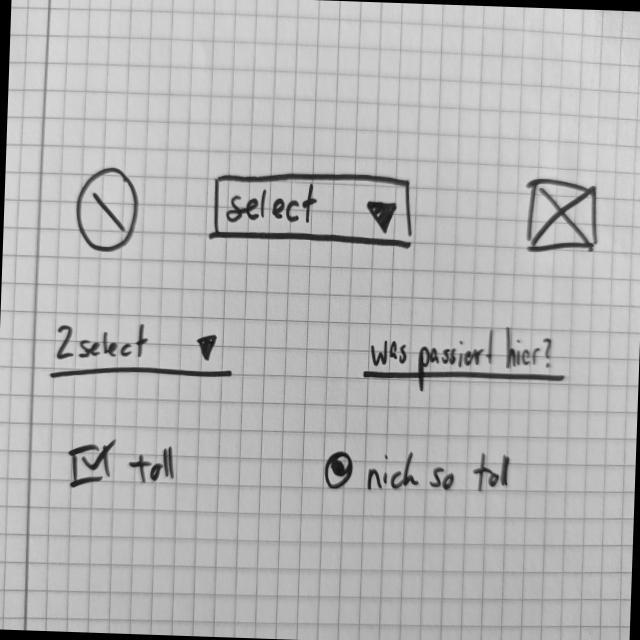 select
2select
was passiert hier?
toll
nich so tol